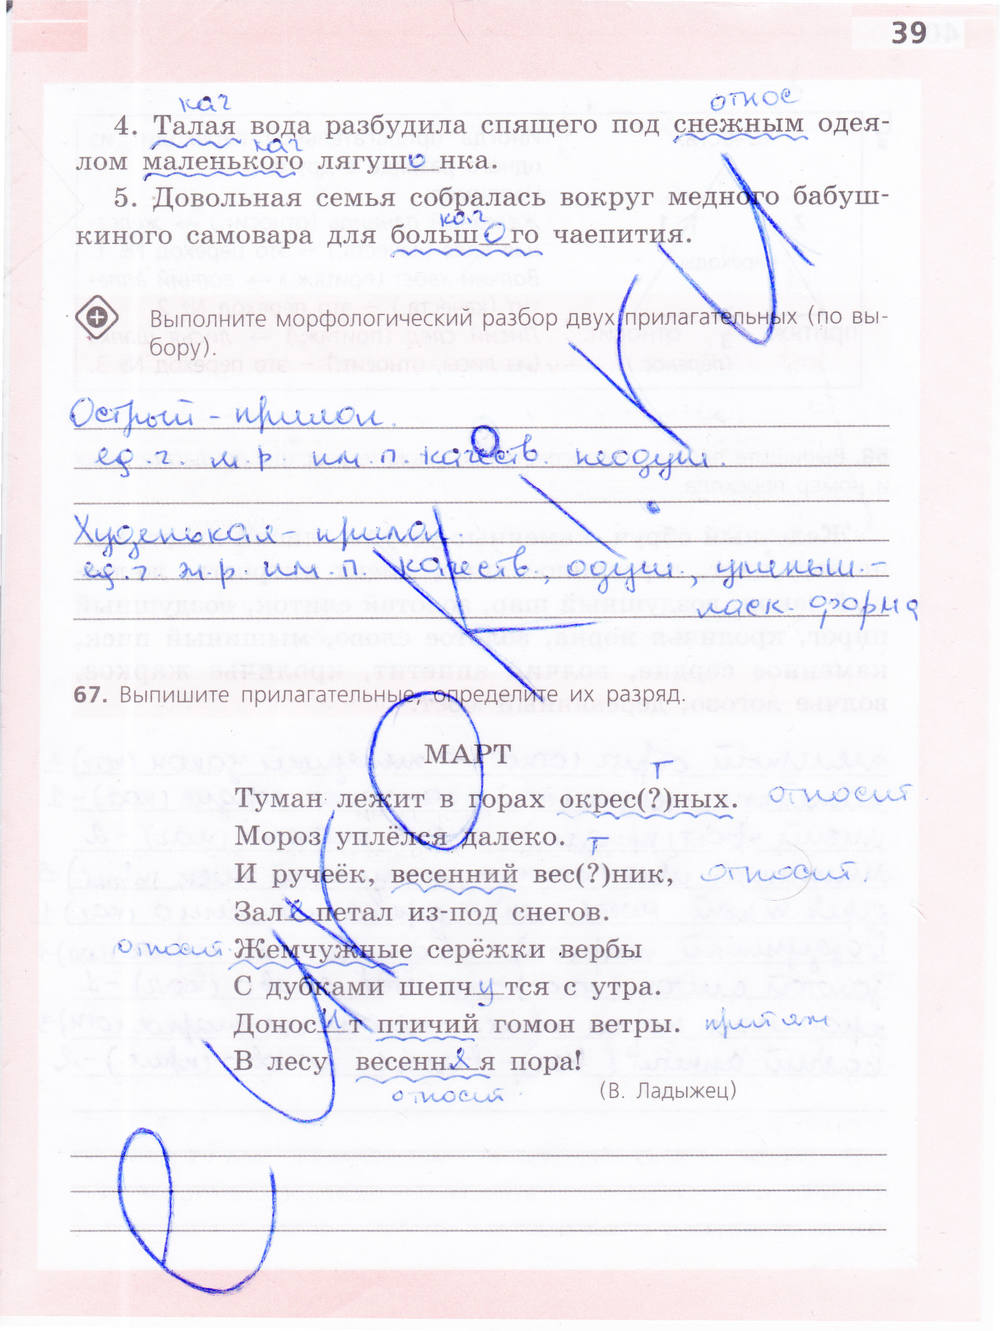 39
кач относ
4. Талая вода разбудила спящего под снежным одея-
кач
лом маленького лягушонка.
5. Довольная семья собралась вокруг медного бабуш-
кач
киного самовара для большого чаепития.
Выполните морфологический разбор двух прилагательных (по вы-
бору).
Острый - прилаг.
ед.ч. м.р им.п. качеств неодуш.
Худенькая - прилаг
ед.ч ж.р. им.п. качеств, одуш, уменьш.
ласк. форма
67. Выпишите прилагательные, определите их разряд.
МАРТ
т
Туман лежит в горах окрес(?)ных. относит
Мороз уплёлся далеко.
т
И ручеёк, весенний вес(?)ник, относит.
Залепетал из-под снегов.
относит Жемчужные серёжки вербы
С дубками шепчутся с утра.
Доносит птичий гомон ветры. притяж
В лесу весенняя пора!
относит.
(В. Ладыжец)